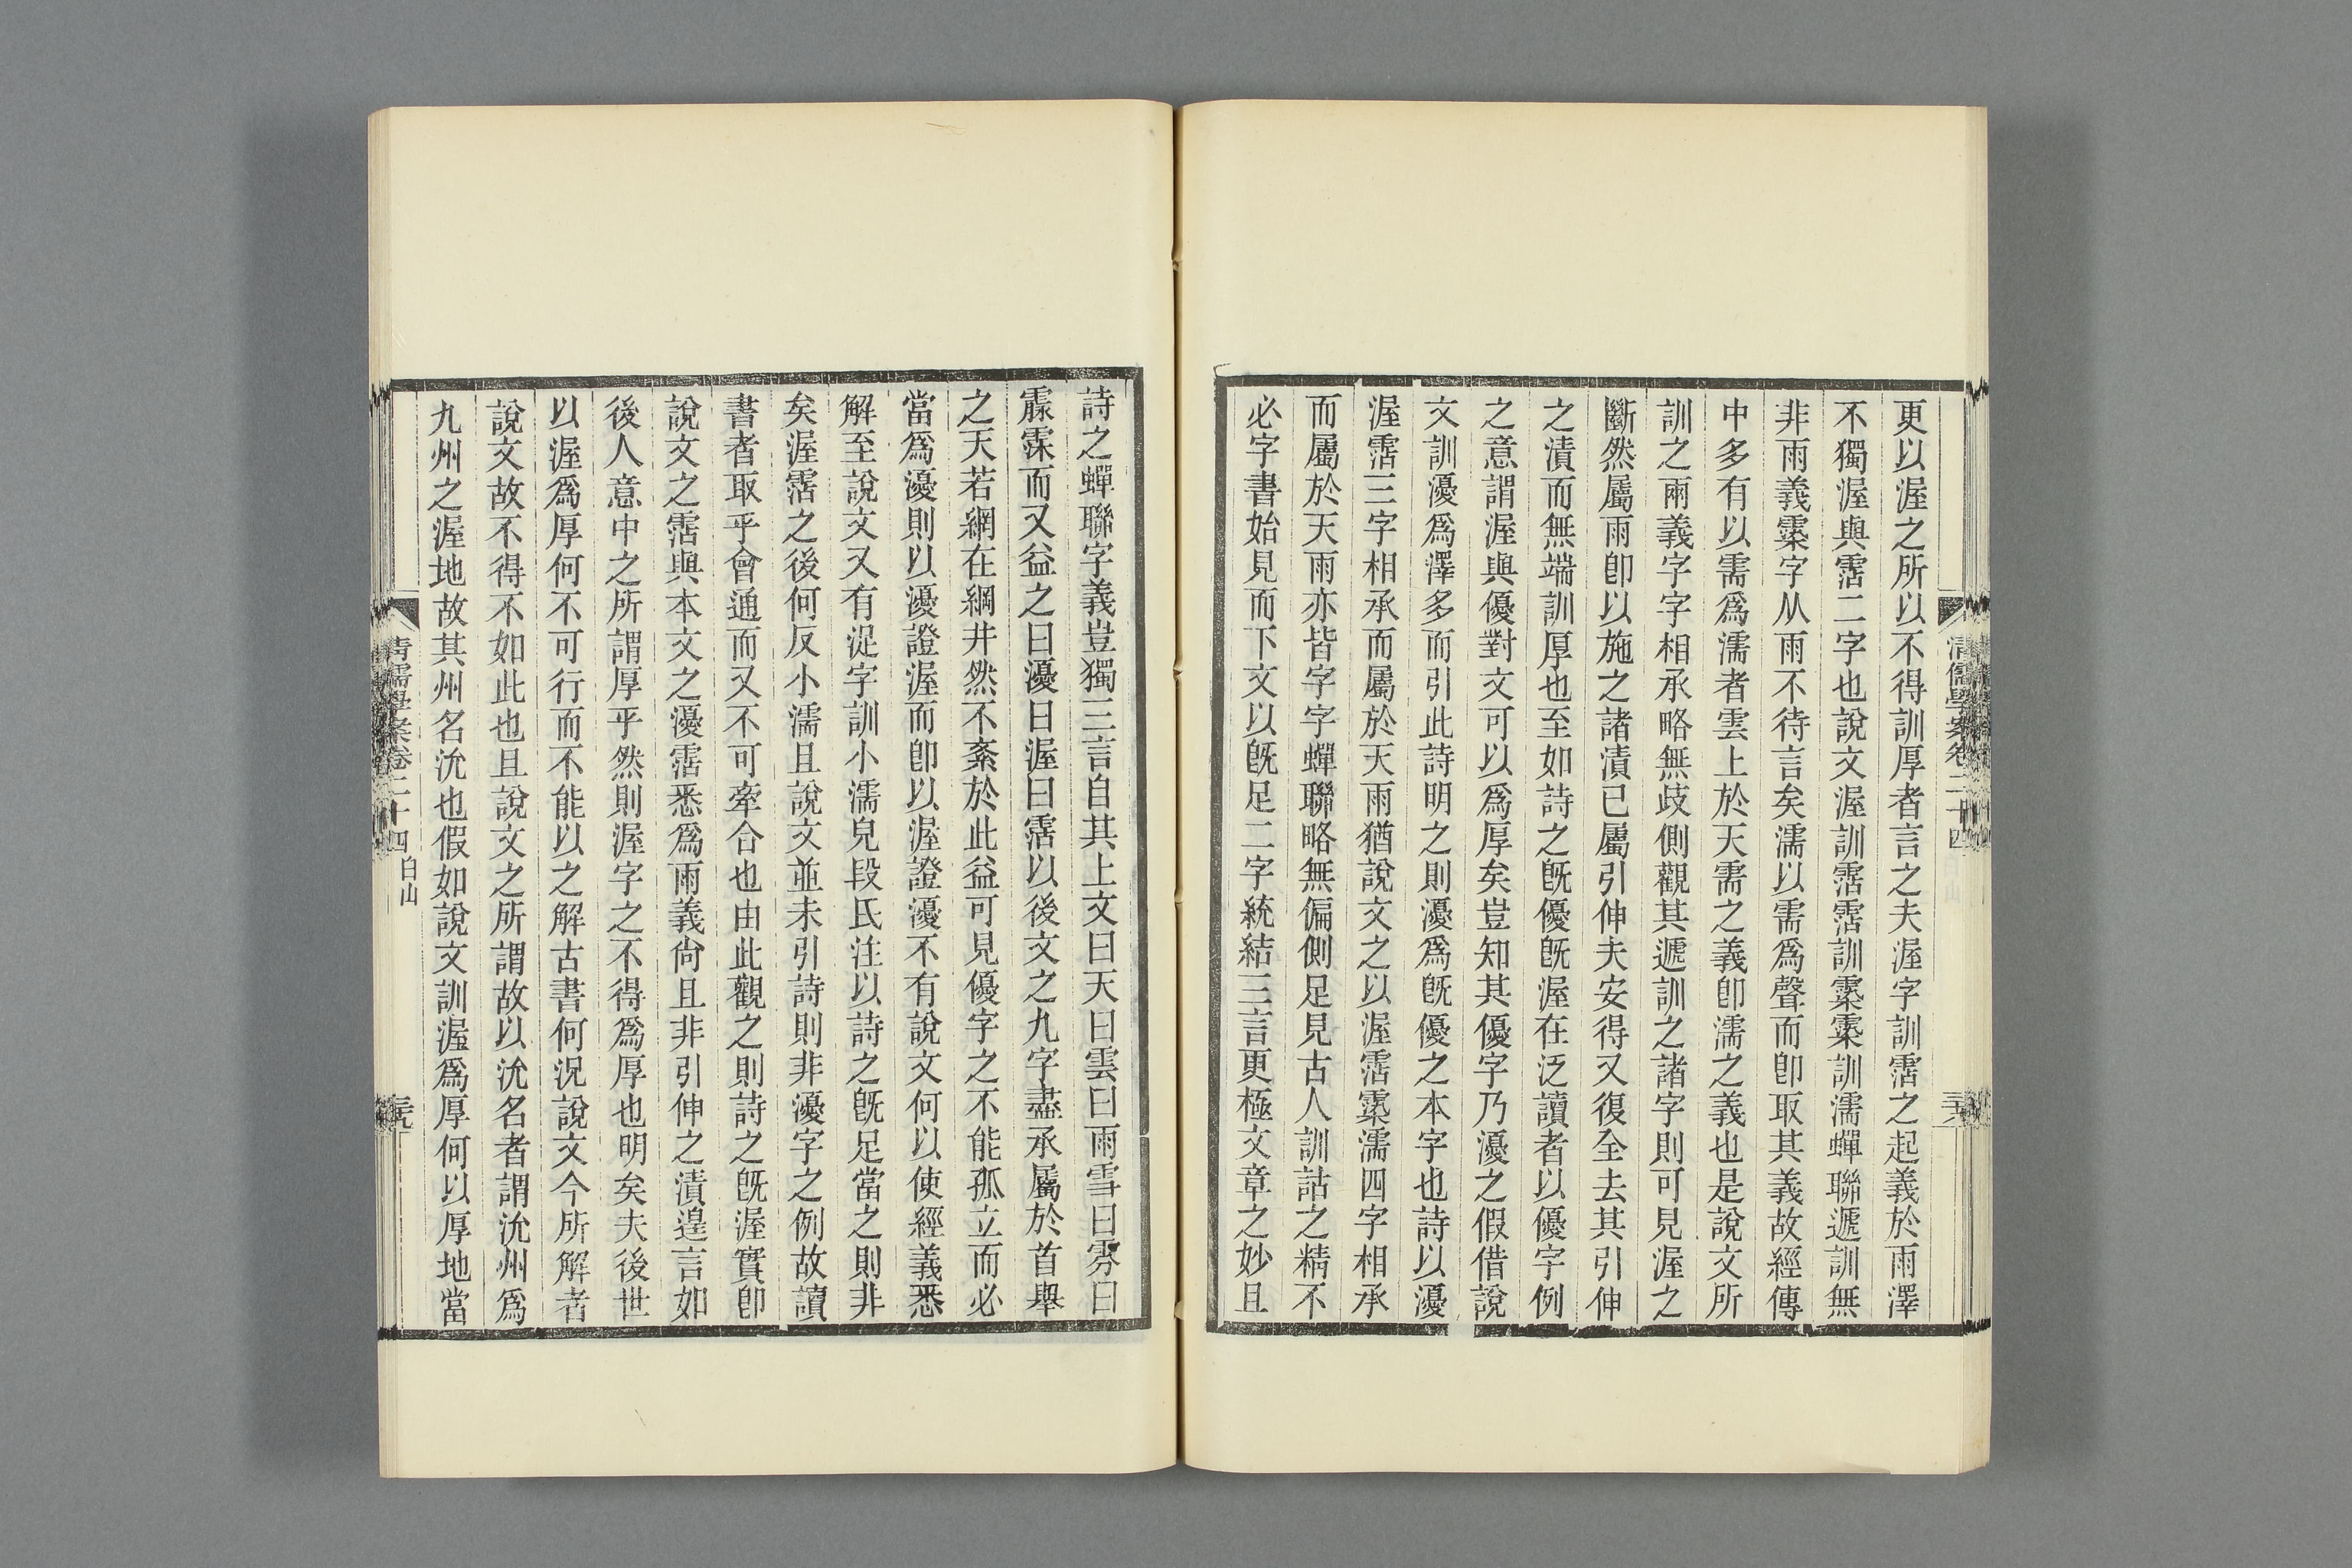 更以渥之所以不得訓厚者言之夫渥字訓霑之起義於雨澤
不獨渥與霑二字也說文渥訓霑霑訓䨙䨙訓濡蟬聯遞訓無
非雨義䨙字从雨不待言矣濡以需爲聲而卽取其義故經傳
中多有以需爲濡者雲上於天需之義卽濡之義也是說文所
訓之雨義字字相承略無歧側觀其遞訓之諸字則可見渥之
斷然屬雨卽以施之諸漬已屬引伸夫安得又復全去其引伸
之漬而無端訓厚也至如詩之旣優旣渥在泛讀者以優字例
之意謂渥與優對文可以爲厚矣豈知其優字乃瀀之假借說
文訓瀀爲澤多而引此詩明之則瀀爲旣優之本字也詩以瀀
渥霑三字相承而屬於天雨猶說文之以渥霑䨙濡四字相承
而屬於天雨亦皆字字蟬聯略無偏側足見古人訓詁之精不
必字書始見而下文以旣足二字統結三言更極文章之妙且
清儒學案卷二十四
詩之蟬聯字義豈獨三言自其上文曰天曰雲曰雨雪曰雰曰
霡霂而又益之曰瀀曰渥曰霑以後文之九字盡承屬於首舉
之天若網在綱井然不紊於此益可見優字之不能孤立而必
當爲瀀則以瀀證渥而卽以渥證瀀不有說文何以使經義悉
解至說文又有浞字訓小濡皃段氏注以詩之旣足當之則非
矣渥霑之後何反小濡且說文並未引詩則非瀀字之例故讀
書者取乎會通而又不可牽合也由此觀之則詩之旣渥實卽
說文之霑與本文之瀀霑悉爲雨義尙且非引伸之漬遑言如
後人意中之所謂厚乎然則渥字之不得爲厚也明矣夫後世
以渥爲厚何不可行而不能以之解古書何況說文今所解者
說文故不得不如此也且說文之所謂故以沇名者謂沇州爲
九州之渥地故其州名沇也假如說文訓渥爲厚何以厚地當
清儒學案卷二十四 白山